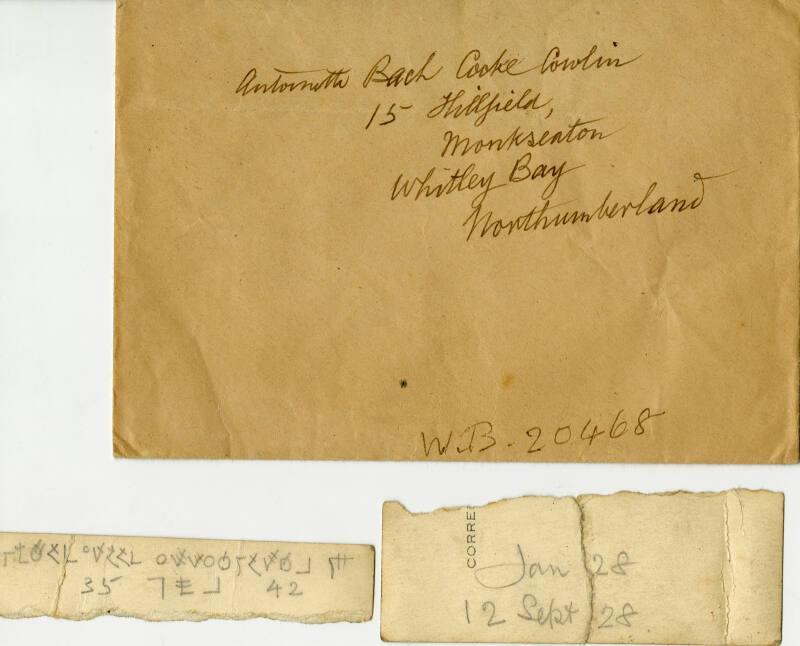 Antoinette Bach Cocke Cowlin
15 Hillfield,
Monkseaton
Whitley Bay
Northumberland
W.B. 20468
35 42
CORRE
Jan 28
12 Sept 28